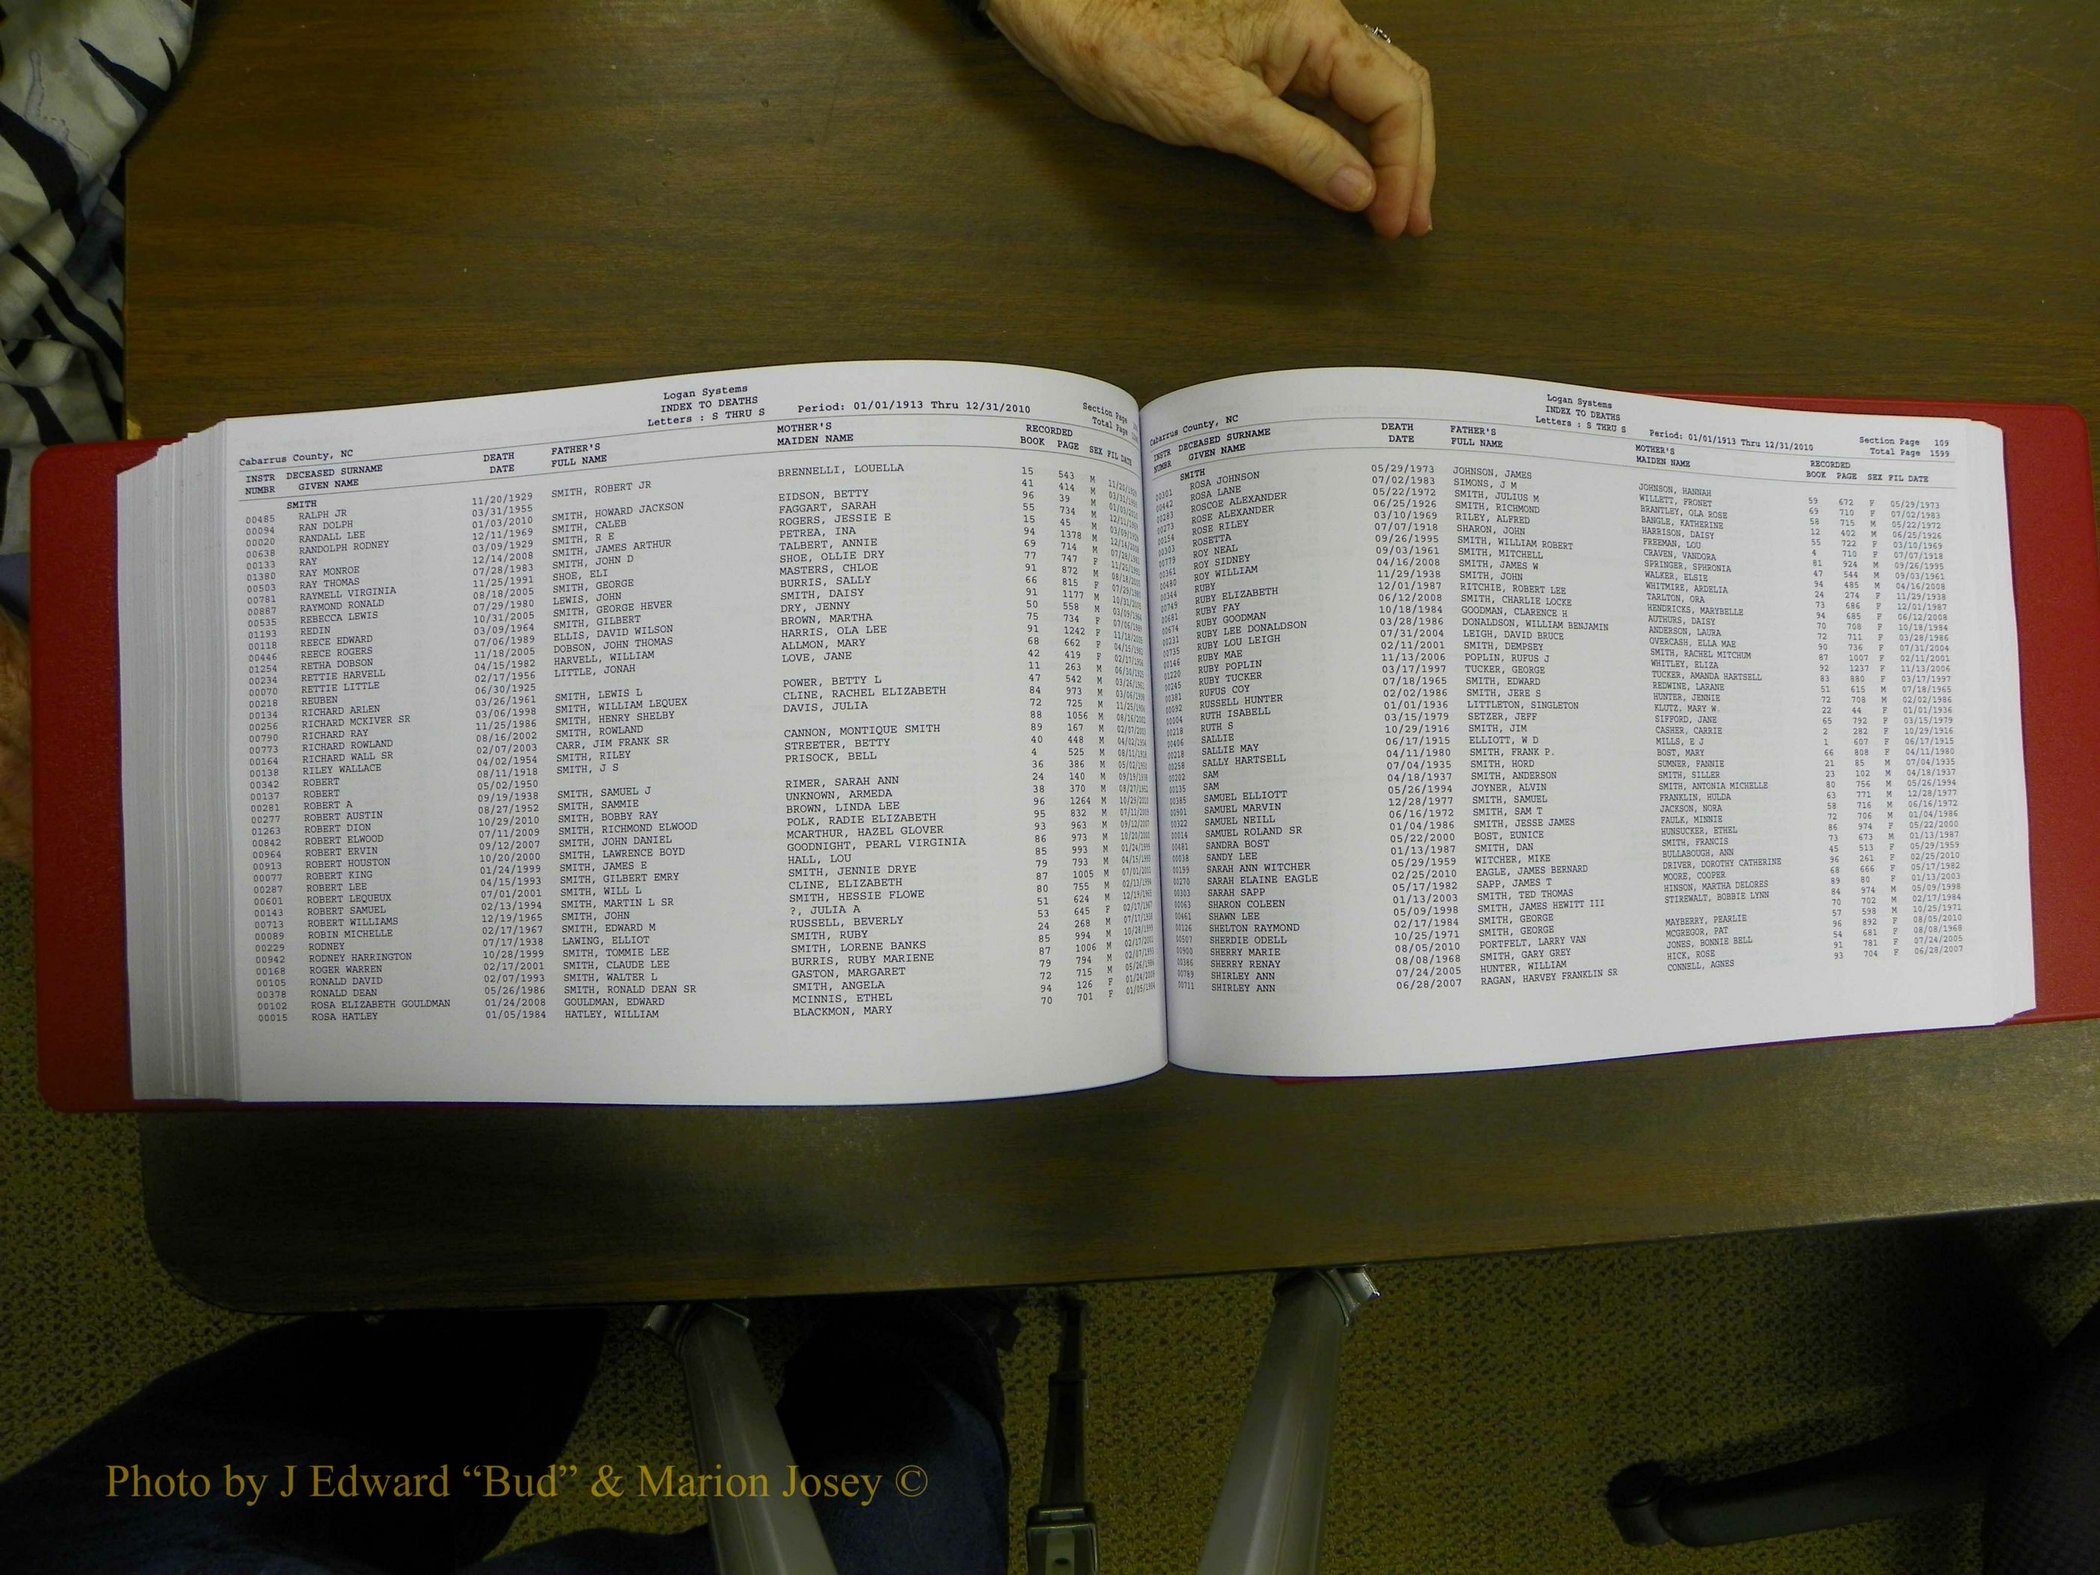 Logan Systems
INDEX TO DEATHS
Letters : S THRU S Period: 01/01/1913 Thru 12/31/2010 Section Page
Cabarrus County, NC Total Page
INSTR DECEASED SURNAME DEATH FATHER'S MOTHER'S RECORDED
NUMBR GIVEN NAME DATE FULL NAME MAIDEN NAME BOOK PAGE SEX FIL DATE
SMITH
00485 RALPH JR 11/20/1929 SMITH, ROBERT JR BRENNELLI, LOUELLA 15 543 M 11/20/1929
00094 RAN DOLPH 03/31/1955 41 414 M 03/31/1955
00020 RANDALL LEE 01/03/2010 SMITH, HOWARD JACKSON EIDSON, BETTY 96 39 M 01/03/2010
00638 RANDOLPH RODNEY 12/11/1969 SMITH, CALEB FAGGART, SARAH 55 734 M 12/11/1969
00133 RAY 03/09/1929 SMITH, R E ROGERS, JESSIE E 15 45 M 03/09/1929
01380 RAY MONROE 12/14/2008 SMITH, JAMES ARTHUR PETREA, INA 94 1378 M 12/14/2008
00503 RAY THOMAS 07/28/1983 SMITH, JOHN D TALBERT, ANNIE 69 714 M 07/28/1983
00781 RAYMELL VIRGINIA 11/25/1991 SHOE, ELI SHOE, OLLIE DRY 77 747 F 11/25/1991
00887 RAYMOND RONALD 08/18/2005 SMITH, GEORGE MASTERS, CHLOE 91 872 M 08/18/2005
00535 REBECCA LEWIS 07/29/1980 LEWIS, JOHN BURRIS, SALLY 66 815 F 07/29/1980
01193 REDIN 10/31/2005 SMITH, GEORGE HEVER SMITH, DAISY 91 1177 M 10/31/2005
00118 REECE EDWARD 03/09/1964 SMITH, GILBERT DRY, JENNY 50 558 M 03/09/1964
00446 REECE ROGERS 07/06/1989 ELLIS, DAVID WILSON BROWN, MARTHA 75 734 F 07/06/1989
01254 RETHA DOBSON 11/18/2005 DOBSON, JOHN THOMAS HARRIS, OLA LEE 91 1242 F 11/18/2005
00234 RETTIE HARVELL 04/15/1982 HARVELL, WILLIAM ALLMON, MARY 68 662 F 04/15/1982
00070 RETTIE LITTLE 02/17/1956 LITTLE, JONAH LOVE, JANE 42 419 F 02/17/1956
00218 REUBEN 06/30/1925 11 263 M 06/30/1925
00134 RICHARD ARLEN 03/26/1961 SMITH, LEWIS L POWER, BETTY L 47 542 M 03/26/1961
00256 RICHARD MCKIVER SR 03/06/1998 SMITH, WILLIAM LEQUEX CLINE, RACHEL ELIZABETH 84 973 M 03/06/1998
00790 RICHARD RAY 11/25/1986 SMITH, HENRY SHELBY DAVIS, JULIA 72 725 M 11/25/1986
00773 RICHARD ROWLAND 08/16/2002 SMITH, ROWLAND 88 1056 M 08/16/2002
00164 RICHARD WALL SR 02/07/2003 CARR, JIM FRANK SR CANNON, MONTIQUE SMITH 89 167 M 02/07/2003
00138 RILEY WALLACE 04/02/1954 SMITH, RILEY STREETER, BETTY 40 448 M 04/02/1954
00342 ROBERT 08/11/1918 SMITH, J S PRISOCK, BELL 4 525 M 08/11/1918
00137 ROBERT 05/02/1950 36 386 M 05/02/1950
00281 ROBERT A 09/19/1938 SMITH, SAMUEL J RIMER, SARAH ANN 24 140 M 09/19/1938
00277 ROBERT AUSTIN 08/27/1952 SMITH, SAMMIE UNKNOWN, ARMEDA 38 370 M 08/27/1952
01263 ROBERT DION 10/29/2010 SMITH, BOBBY RAY BROWN, LINDA LEE 96 1264 M 10/29/2010
00842 ROBERT ELWOOD 07/11/2009 SMITH, RICHMOND ELWOOD POLK, RADIE ELIZABETH 95 832 M 07/11/2009
00964 ROBERT ERVIN 09/12/2007 SMITH, JOHN DANIEL MCARTHUR, HAZEL GLOVER 93 963 M 09/12/2007
00913 ROBERT HOUSTON 10/20/2000 SMITH, LAWRENCE BOYD GOODNIGHT, PEARL VIRGINIA 86 973 M 10/20/2000
00077 ROBERT KING 01/24/1999 SMITH, JAMES E HALL, LOU 85 993 M 01/24/1999
00287 ROBERT LEE 04/15/1993 SMITH, GILBERT EMRY SMITH, JENNIE DRYE 79 793 M 04/15/1993
00601 ROBERT LEQUEUX 07/01/2001 SMITH, WILL L CLINE, ELIZABETH 87 1005 M 07/01/2001
00143 ROBERT SAMUEL 02/13/1994 SMITH, MARTIN L SR SMITH, HESSIE FLOWE 80 755 M 02/13/1994
00713 ROBERT WILLIAMS 12/19/1965 SMITH, JOHN ?, JULIA A 51 624 M 12/19/1965
00089 ROBIN MICHELLE 02/17/1967 SMITH, EDWARD M RUSSELL, BEVERLY 53 645 F 02/17/1967
00229 RODNEY 07/17/1938 LAWING, ELLIOT SMITH, RUBY 24 268 M 07/17/1938
00942 RODNEY HARRINGTON 10/28/1999 SMITH, TOMMIE LEE SMITH, LORENE BANKS 85 994 M 10/28/1999
00168 ROGER WARREN 02/17/2001 SMITH, CLAUDE LEE BURRIS, RUBY MARIENE 87 1006 M 02/17/2001
00105 RONALD DAVID 02/07/1993 SMITH, WALTER L GASTON, MARGARET 79 794 M 02/07/1993
00378 RONALD DEAN 05/26/1986 SMITH, RONALD DEAN SR SMITH, ANGELA 72 715 M 05/26/1986
00102 ROSA ELIZABETH GOULDMAN 01/24/2008 GOULDMAN, EDWARD MCINNIS, ETHEL 94 126 F 01/24/2008
00015 ROSA HATLEY 01/05/1984 HATLEY, WILLIAM BLACKMON, MARY 70 701 F 01/05/1984
Logan Systems
INDEX TO DEATHS
Letters : S THRU S Period: 01/01/1913 Thru 12/31/2010 Section Page 109
Cabarrus County, NC Total Page 1599
INSTR DECEASED SURNAME DEATH FATHER'S MOTHER'S RECORDED
NUMBR GIVEN NAME DATE FULL NAME MAIDEN NAME BOOK PAGE SEX FIL DATE
SMITH
00301 ROSA JOHNSON 05/29/1973 JOHNSON, JAMES JOHNSON, HANNAH 59 672 F 05/29/1973
00442 ROSA LANE 07/02/1983 SIMONS, J M WILLETT, FRONET 69 710 F 07/02/1983
00283 ROSCOE ALEXANDER 05/22/1972 SMITH, JULIUS M BRANTLEY, OLA ROSE 58 715 M 05/22/1972
00273 ROSE ALEXANDER 06/25/1926 SMITH, RICHMOND BANGLE, KATHERINE 12 402 M 06/25/1926
00154 ROSE RILEY 03/10/1969 RILEY, ALFRED HARRISON, DAISY 55 722 F 03/10/1969
00303 ROSETTA 07/07/1918 SHARON, JOHN FREEMAN, LOU 4 710 F 07/07/1918
00779 ROY NEAL 09/26/1995 SMITH, WILLIAM ROBERT CRAVEN, VANDORA 81 924 M 09/26/1995
00361 ROY SIDNEY 09/03/1961 SMITH, MITCHELL SPRINGER, SPHRONIA 47 544 M 09/03/1961
00480 ROY WILLIAM 04/16/2008 SMITH, JAMES W WALKER, ELSIE 94 485 M 04/16/2008
00344 RUBY 11/29/1938 SMITH, JOHN WHITMIRE, ARDELIA 24 274 F 11/29/1938
00749 RUBY ELIZABETH 12/01/1987 RITCHIE, ROBERT LEE TARLTON, ORA 73 686 F 12/01/1987
00681 RUBY FAY 06/12/2008 SMITH, CHARLIE LOCKE HENDRICKS, MARYBELLE 94 685 F 06/12/2008
00674 RUBY GOODMAN 10/18/1984 GOODMAN, CLARENCE H AUTHURS, DAISY 70 708 F 10/18/1984
00231 RUBY LEE DONALDSON 03/28/1986 DONALDSON, WILLIAM BENJAMIN ANDERSON, LAURA 72 711 F 03/28/1986
00735 RUBY LOU LEIGH 07/31/2004 LEIGH, DAVID BRUCE OVERCASH, ELLA MAE 90 736 F 07/31/2004
00146 RUBY MAE 02/11/2001 SMITH, DEMPSEY SMITH, RACHEL MITCHUM 87 1007 F 02/11/2001
01220 RUBY POPLIN 11/13/2006 POPLIN, RUFUS J WHITLEY, ELIZA 92 1237 F 11/13/2006
00245 RUBY TUCKER 03/17/1997 TUCKER, GEORGE TUCKER, AMANDA HARTSELL 83 880 F 03/17/1997
00381 RUFUS COY 07/18/1965 SMITH, EDWARD REDWINE, LARANE 51 615 M 07/18/1965
00092 RUSSELL HUNTER 02/02/1986 SMITH, JERE S HUNTER, JENNIE 72 708 M 02/02/1986
00004 RUTH ISABELL 01/01/1936 LITTLETON, SINGLETON KLUTZ, MARY W. 22 44 F 01/01/1936
00218 RUTH S 03/15/1979 SETZER, JEFF SIFFORD, JANE 65 792 F 03/15/1979
00406 SALLIE 10/29/1916 SMITH, JIM CASHER, CARRIE 2 282 F 10/29/1916
00218 SALLIE MAY 06/17/1915 ELLIOTT, W D MILLS, E J 1 607 F 06/17/1915
00258 SALLY HARTSELL 04/11/1980 SMITH, FRANK P. BOST, MARY 66 808 F 04/11/1980
00202 SAM 07/04/1935 SMITH, HORD SUMNER, FANNIE 21 85 M 07/04/1935
00135 SAM 04/18/1937 SMITH, ANDERSON SMITH, SILLER 23 102 M 04/18/1937
00385 SAMUEL ELLIOTT 05/26/1994 JOYNER, ALVIN SMITH, ANTONIA MICHELLE 80 756 M 05/26/1994
00901 SAMUEL MARVIN 12/28/1977 SMITH, SAMUEL FRANKLIN, HULDA 63 771 M 12/28/1977
00322 SAMUEL NEILL 06/16/1972 SMITH, SAM T JACKSON, NORA 58 716 M 06/16/1972
00014 SAMUEL ROLAND SR 01/04/1986 SMITH, JESSE JAMES FAULK, MINNIE 72 706 M 01/04/1986
00481 SANDRA BOST 05/22/2000 BOST, EUNICE HUNSUCKER, ETHEL 86 974 F 05/22/2000
00038 SANDY LEE 01/13/1987 SMITH, DAN SMITH, FRANCIS 73 673 M 01/13/1987
00199 SARAH ANN WITCHER 05/29/1959 WITCHER, MIKE BULLABOUGH, ANN 45 513 F 05/29/1959
00270 SARAH ELAINE EAGLE 02/25/2010 EAGLE, JAMES BERNARD DRIVER, DOROTHY CATHERINE 96 261 F 02/25/2010
00303 SARAH SAPP 05/17/1982 SAPP, JAMES T MOORE, COOPER 68 666 F 05/17/1982
00063 SHARON COLEEN 01/13/2003 SMITH, TED THOMAS HINSON, MARTHA DELORES 89 80 F 01/13/2003
00461 SHAWN LEE 05/09/1998 SMITH, JAMES HEWITT III STIREWALT, BOBBIE LYNN 84 974 M 05/09/1998
00126 SHELTON RAYMOND 02/17/1984 SMITH, GEORGE 70 702 M 02/17/1984
00507 SHERDIE ODELL 10/25/1971 SMITH, GEORGE MAYBERRY, PEARLIE 57 598 M 10/25/1971
00900 SHERRY MARIE 08/05/2010 PORTFELT, LARRY VAN MCGREGOR, PAT 96 892 F 08/05/2010
00386 SHERRY RENAY 08/08/1968 SMITH, GARY GREY JONES, BONNIE BELL 54 681 F 08/08/1968
00789 SHIRLEY ANN 07/24/2005 HUNTER, WILLIAM HICK, ROSE 91 781 F 07/24/2005
00711 SHIRLEY ANN 06/28/2007 RAGAN, HARVEY FRANKLIN SR CONNELL, AGNES 93 704 F 06/28/2007
Photo by J Edward “Bud” & Marion Josey ©